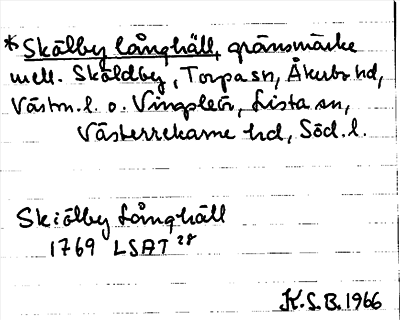 * Skölby långhäll, gränsmärke
mell. Sköldby, Torpa sn, Åkerbo hd,
Västm. l. o. Vingsleör, Lista sn,
Västerrekarne hd, Söd. l.
Skiölby Långhäll
1769 LSAT 28
K.S.B. 1966